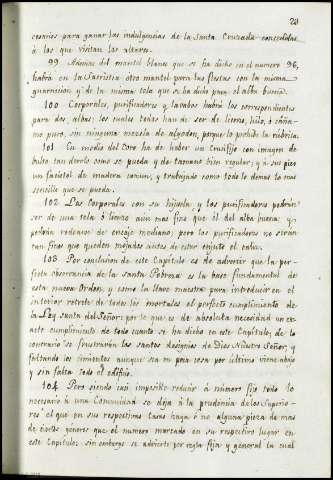 29
cesarios para ganar las indulgencias de la Santa Cruzada concedidas
à los que visitan los altares.
99 Ademas del mantel blanco que se ha dicho en el numero 96,
habrá en la Sacristia otro mantel para las fiestas con la misma
guarnicion y de la misma tela que se ha dicho para el alba buena.
100 Corporales, purificadores y lavabos habrá los correspondientes
para dos albas; los cuales todos han de ser de lienzo, hilo, ò cáña-
mo puro, sin ninguna mezcla de algodon, porque lo prohibe la rúbrica.
101 En medio del Coro ha de haber un crucifijo con imagen de
bulto tan devoto como se pueda y de tamaño bien regular; y à sus pies
un facistol de madera comun, y trabajado como todo lo demas lo mas
sencillo que se pueda.
102 Los Corporales con su hijuela y los purificadores podrán
ser de una tela ò lienzo aún mas fino que el del alba buena: y
podrán rodearse de encaje mediano; pero los purificadores no serán
tan finos que queden mojados antes de estar enjuto el caliz.
103 Por conclusion de este Capitulo es de advertir que la per-
fecta observancia de la Santa Pobreza es la base fundamental de
esta nueva Orden, y como la llave maestra para introducir en el
interior retrete de todos los mortales el perfecto cumplimiento de
la Ley santa del Señor: por lo que es de absoluta necesidad un ex-
acto cumplimiento de todo cuanto se ha dicho en este Capitulo; de lo
contrario se frustrarán los santos designios de Dios Nuestro Señor, y
faltando los cimientos aunque sea en poca cosa por último viene abajo
y sin falta todo el edificio.
104 Pero siendo casi imposible reducir à número fijo todo lo
necesario à una Comunidad se deja à la prudencia de los Superio-
res el que en sus respectivas casas haya ò no alguna pieza de mas
de estos géneros que el numero marcado en su respectivo lugar en
este Capitulo; sin embargo se advierte por regla fija y general la cual